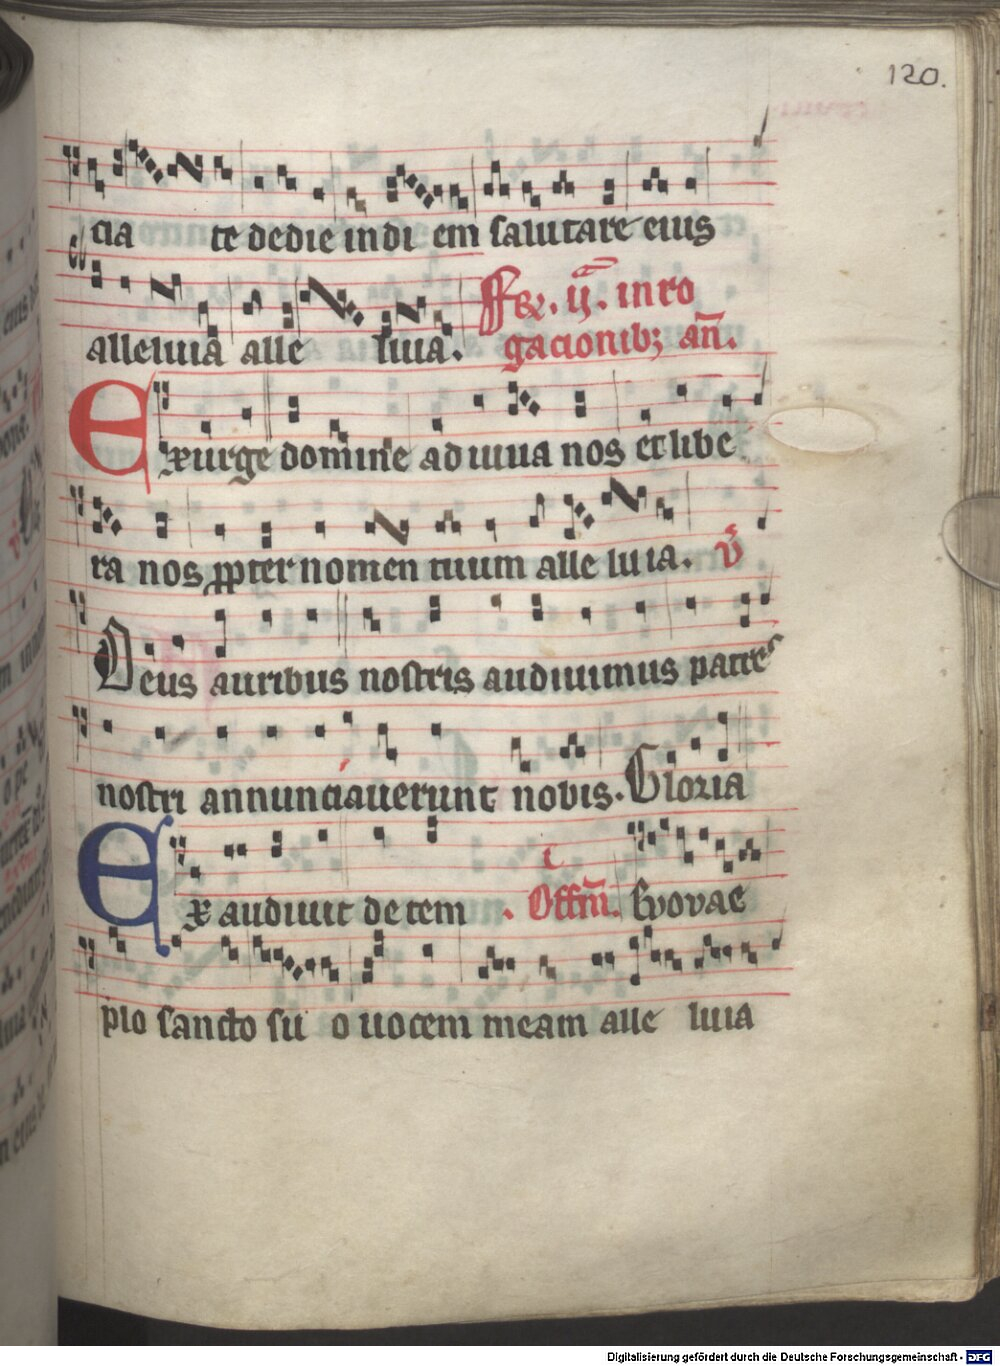 120.
cia te dedie in di em salutare eius
alleluia alle luia. Fer. ij. in ro
gacionibꝫ an̄.
Exurge domine adiuua nos et libe
ra nos ꝓpter nomen tuum alle luia. v̄
Deus auribus nostris audiuimus patres
nostri annunciauerunt nobis. Gloria
Exaudiuit de tem Offm̄. Evovae
plo sancto su o uocem meam alle luia
Digitalisierung gefördert durch die Deutsche Forschungsgemeinschaft - DFG